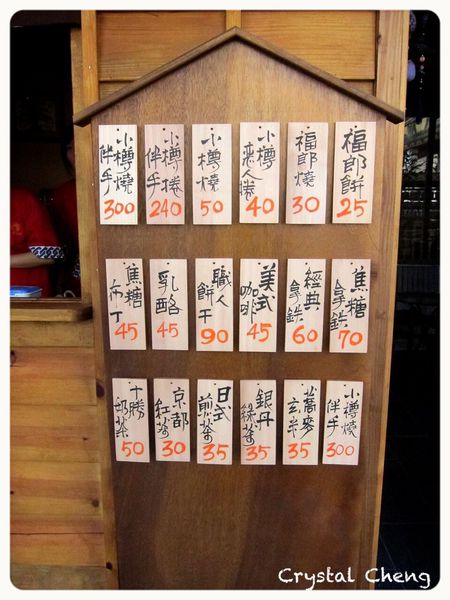 福郎餅
25
福郎燒
30
小樽
戀人捲
40
小樽燒
50
小樽捲
伴手
240
小樽燒
伴手
300
焦糖
拿鉄
70
經典
拿鉄
60
美式
咖啡
45
職人
餅干
90
乳酪
45
焦糖
布丁
45
小樽燒
伴手
300
蕎麥
玄米
35
銀丹
綠茶
35
日式
煎茶
35
京都
紅茶
30
十勝
奶茶
50
Crystal Cheng